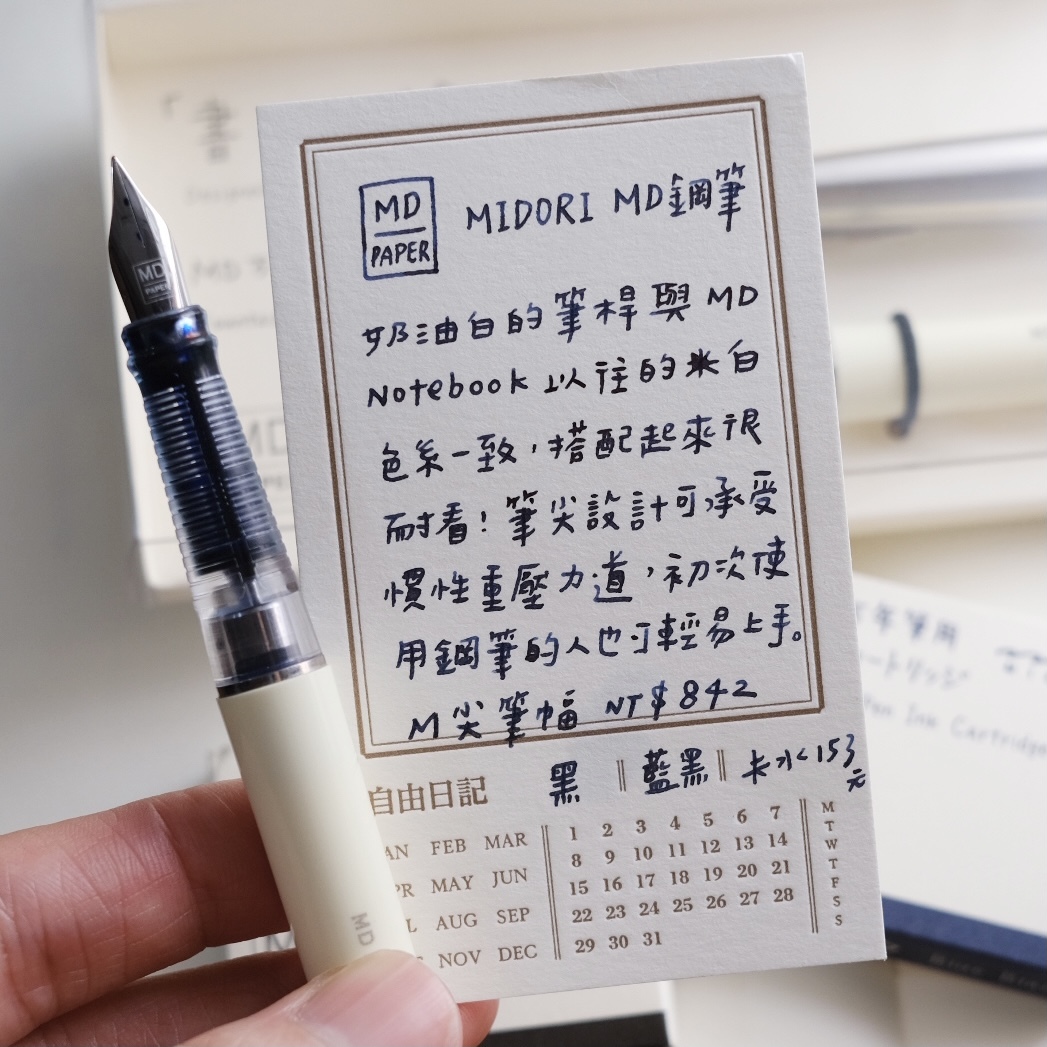 MD
PAPER
MIDORI MD鋼筆
奶油白的筆桿與 MD
Notebook 以往的米白
色系一致，搭配起來很
耐看！筆尖設計可承受
慣性重壓力道，初次使
用鋼筆的人也可輕易上手。
M尖筆幅 NT$842
黑 藍黑 卡水 153
元
自由日記
FEB MAR
MAY JUN
AUG SEP
NOV DEC
1 2 3 4 5 6 7
8 9 10 11 12 13 14
15 16 17 18 19 20 21
22 23 24 25 26 27 28
29 30 31
M
T
W
T
F
S
S
MD
PAPER
MD